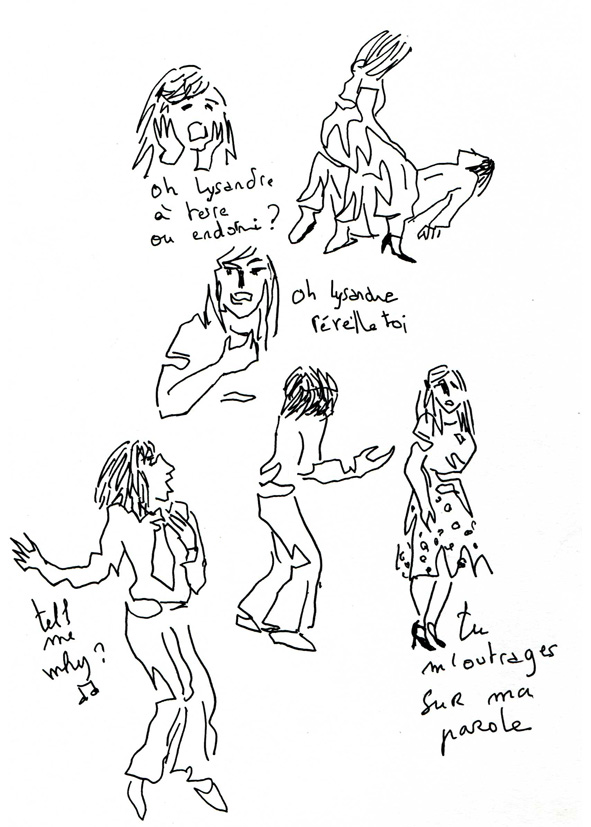 oh Lysandre
à terre
ou endormi?
oh lysandre
réveille toi
tell
me
why?
tu
m'outrages
sur ma
parole